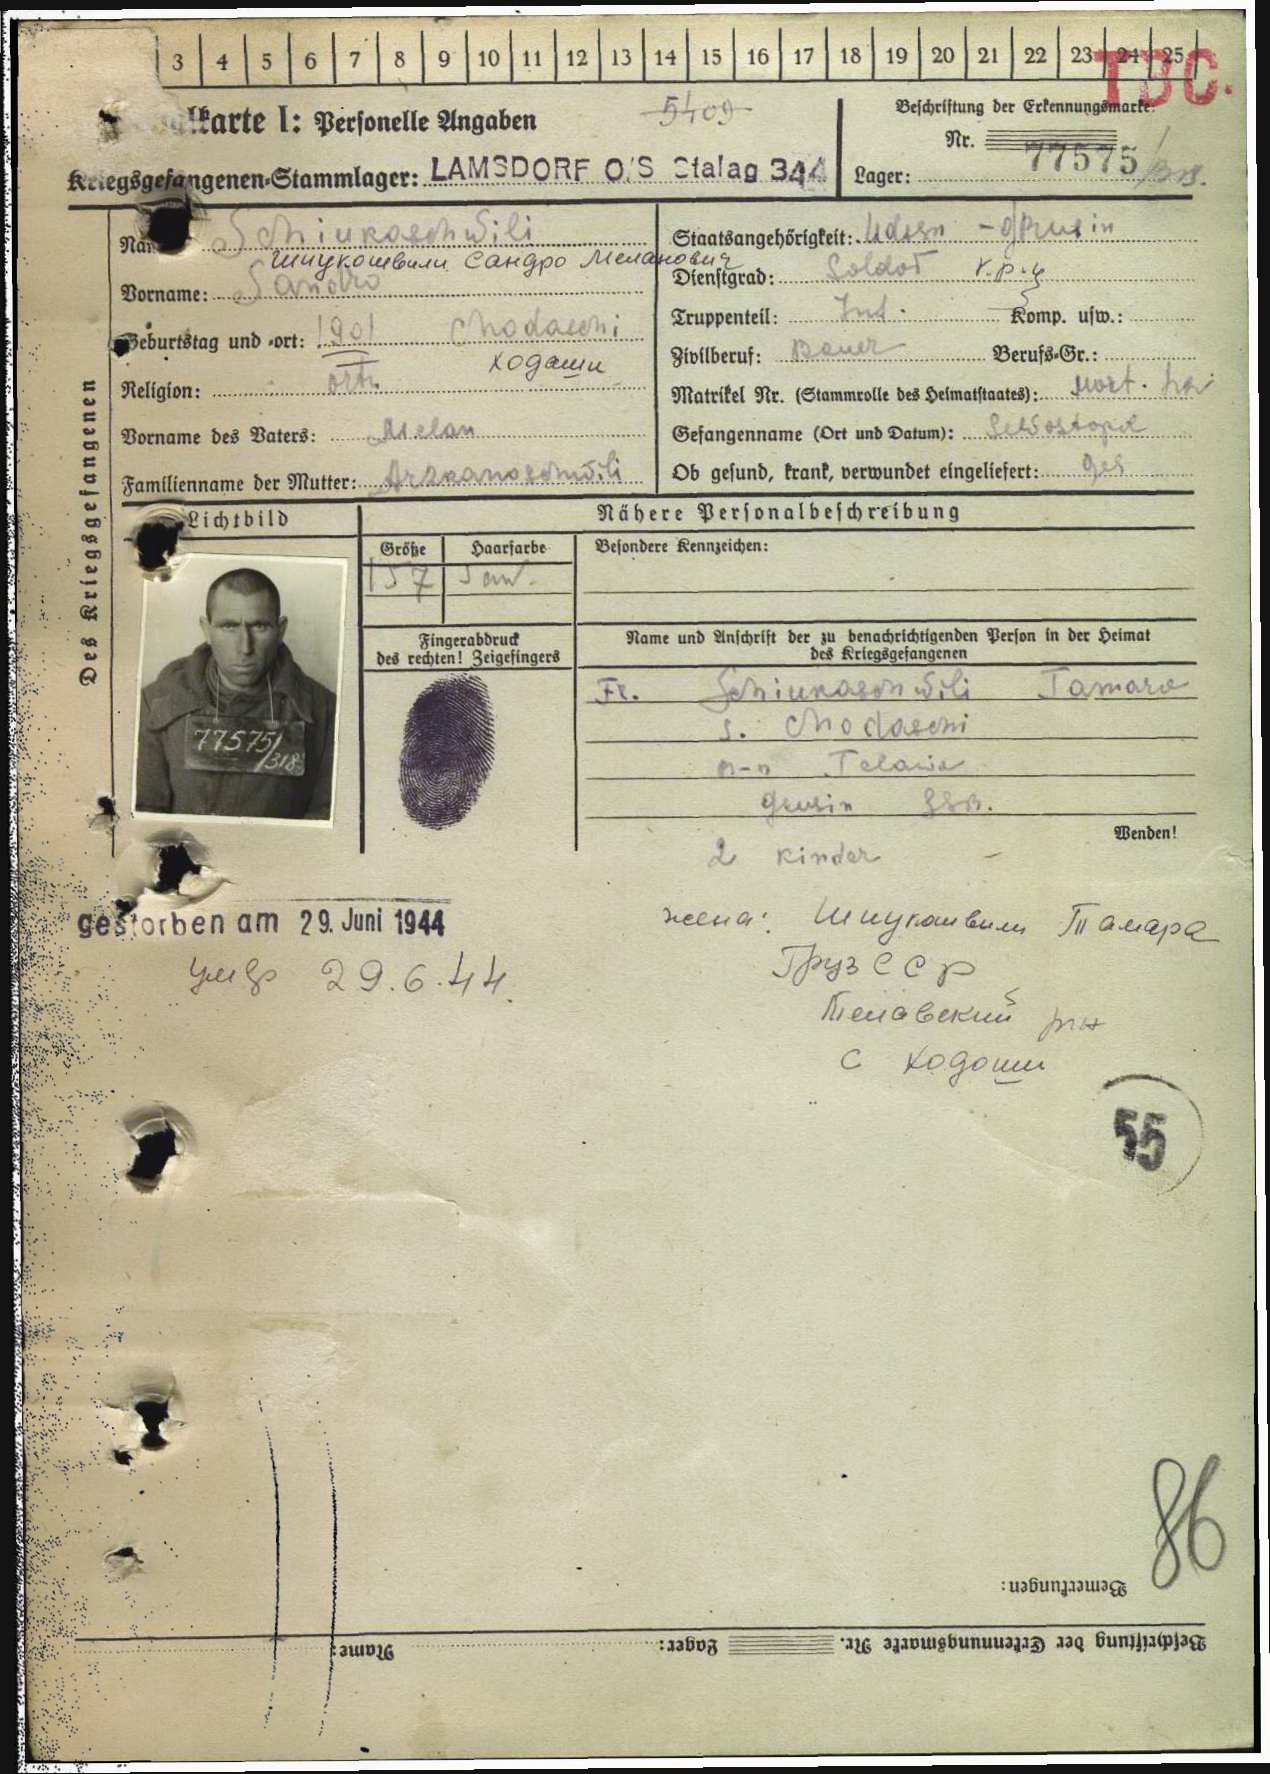 3 4 5 6 7 8 9 10 11 12 13 14 15 16 17 18 19 20 21 22 23 24 25
TBC.
5409
alkarte I: Personelle Angaben
Beschriftung der Erkennungsmarke:
Nr. 77575
Kriegsgefangenen-Stammlager: LAMSDORF O/S Stalag 344
Lager:
Des Kriegsgefangenen
Schiukaschwili
Шиукошвили Сандро Меланович
Vorname: Sandro
Geburtstag und -ort: 1901 Chodaschi
Ходаши
Religion: orth.
Vorname des Vaters: Melan
Familienname der Mutter:
Staatsangehörigkeit: - Grusin
Dienstgrad: Soldat
Truppenteil: Inf. Komp. usw.:
Zivilberuf: Bauer Berufs-Gr.:
Matrikel Nr. (Stammrolle des Heimatstaates):
Gefangenname (Ort und Datum): Sewostopol
Ob gesund, krank, verwundet eingeliefert: ges
Lichtbild
Nähere Personalbeschreibung
Größe Haarfarbe Besondere Kennzeichen:
157
77575/
318
Fingerabdruck
des rechten! Zeigefingers
Name und Anschrift der zu benachrichtigenden Person in der Heimat
des Kriegsgefangenen
Fr. Schiukaschwili Tamara
s. Chodaschi
r-n Telawi
Grusin SSR.
Wenden!
2 kinder
gestorben am 29. Juni 1944
умер 29.6.44.
жена: Шиукошвили Тамара
Груз ССР
Телавский р-н
с Ходоши
55
86
Bemerkungen:
Beschriftung der Erkennungsmarke Nr. Lager: Name: